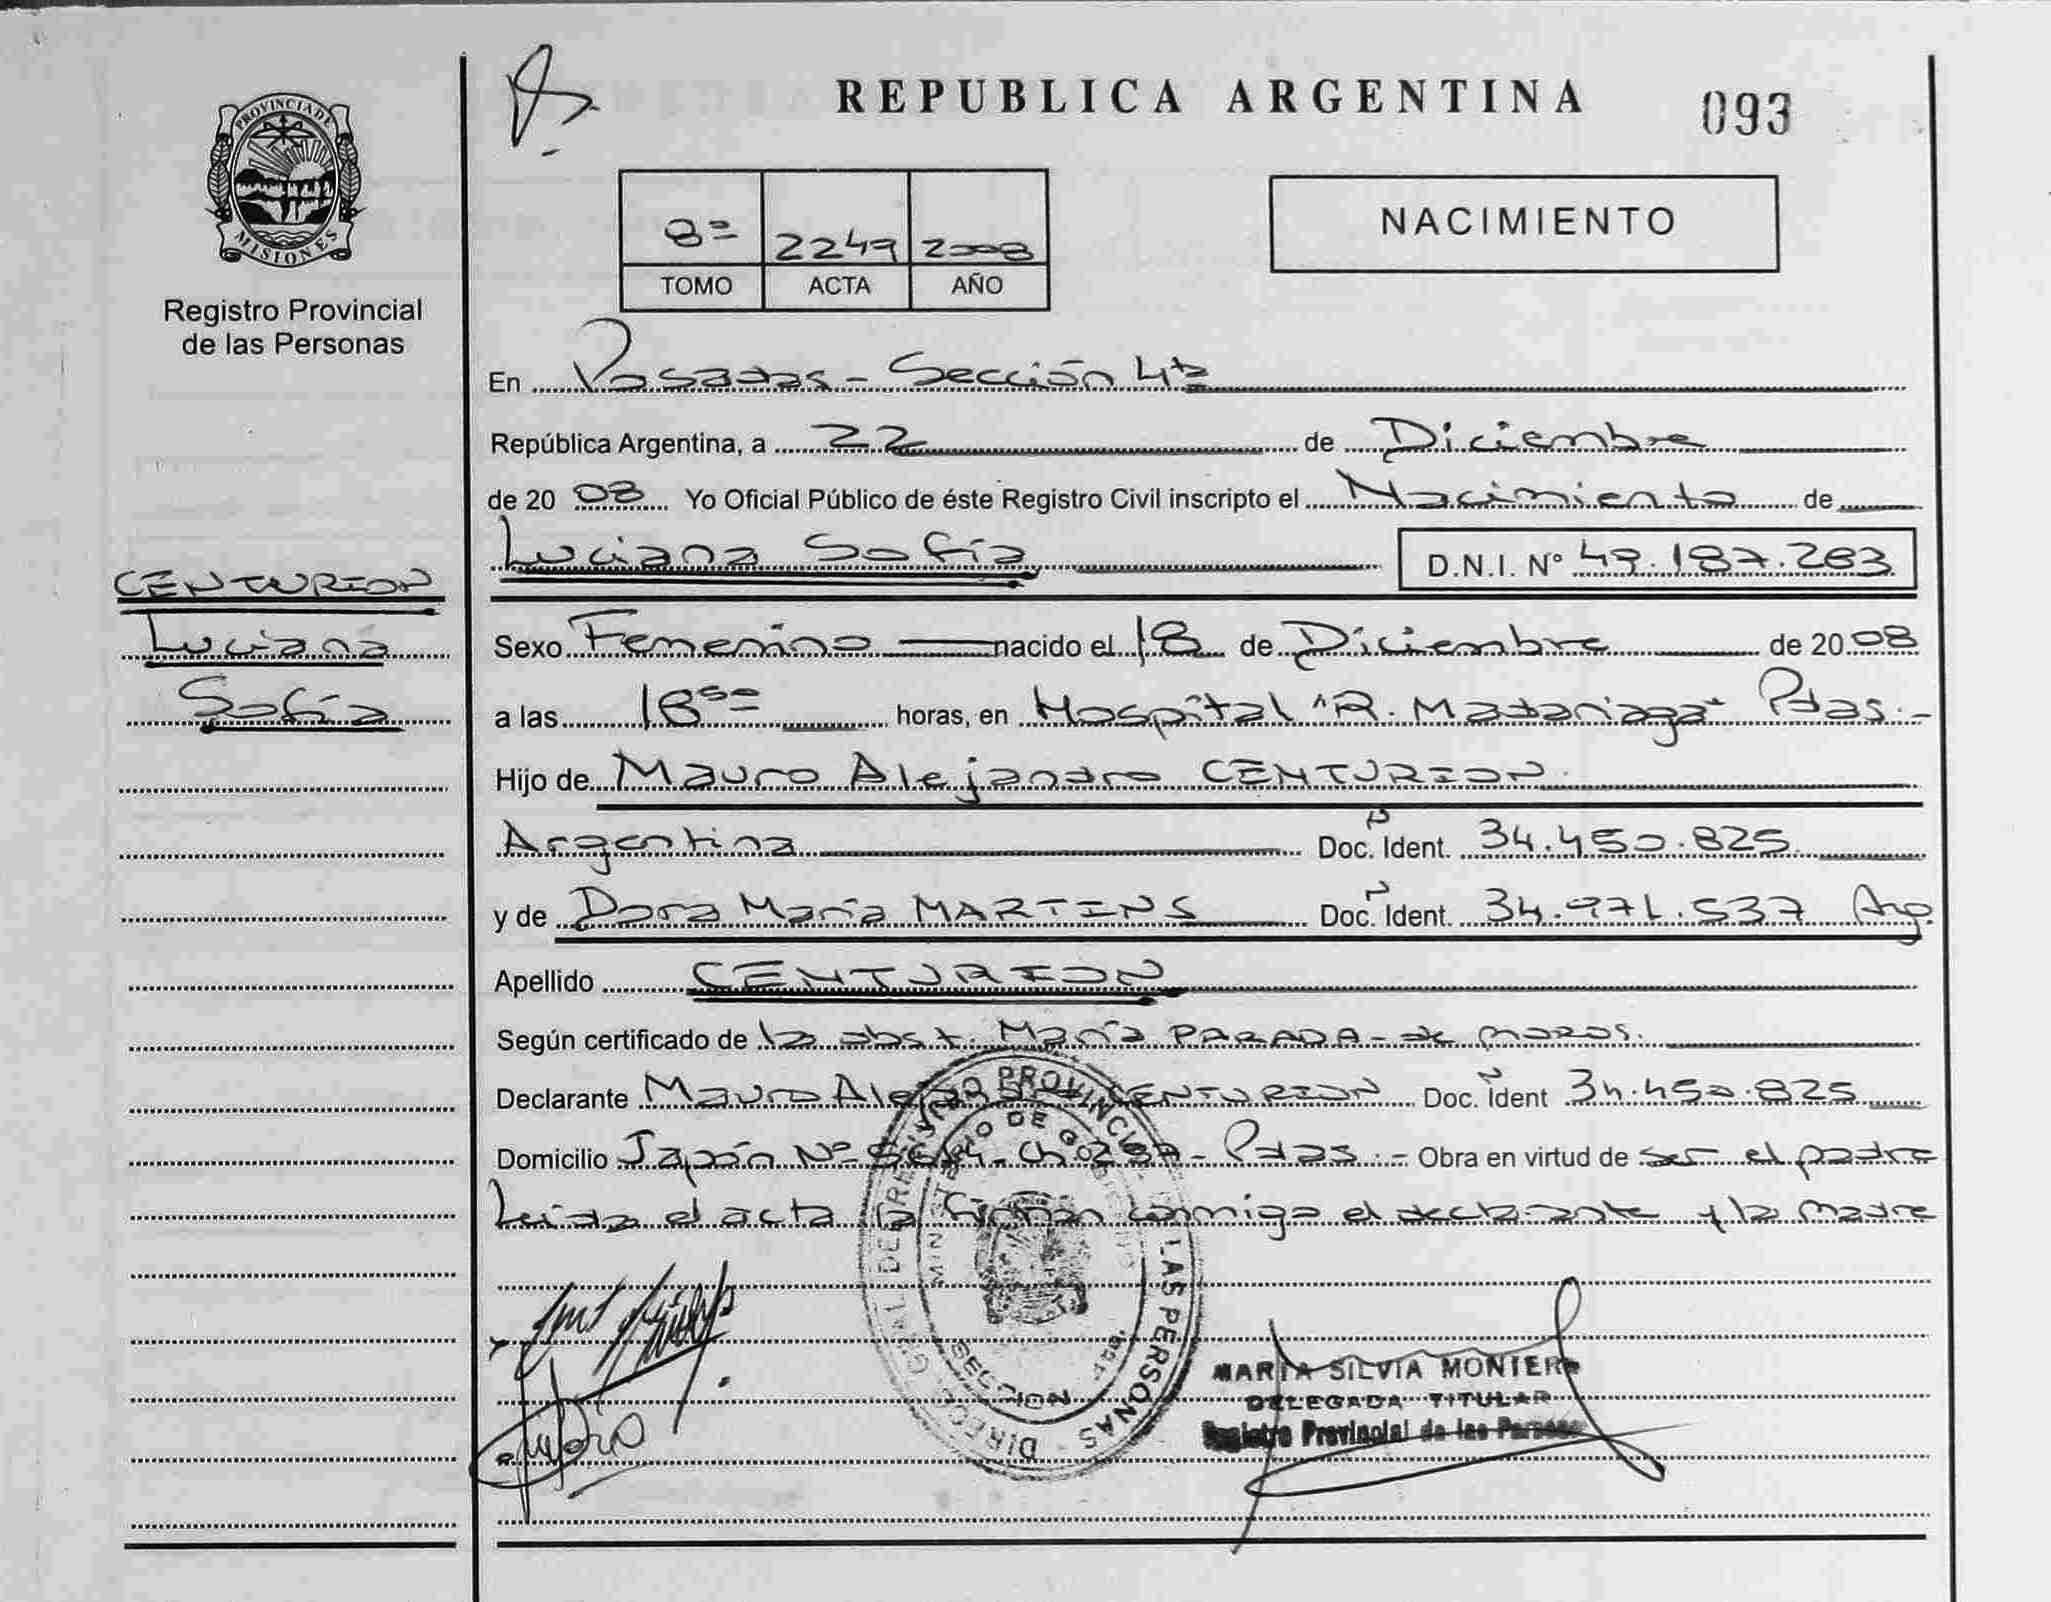 REPUBLICA ARGENTINA
093
PROVINCIA DE
MISIONES
Registro Provincial
de las Personas
8º 2249 2008
TOMO ACTA AÑO
NACIMIENTO
En Posadas - Sección 4ta
República Argentina, a 22 de Diciembre
de 20 08 Yo Oficial Público de éste Registro Civil inscripto el Nacimiento de
Luciana Sofía D.N.I. Nº 49.187.283
CENTURION
Luciana
Sofía
Sexo Femenino nacido el 18 de Diciembre de 20 08
a las 18 horas, en Hospital "R. Madariaga" Pdas.-
Hijo de Mauro Alejandro CENTURION
Argentina Doc. Ident. 34.450.825
y de Dora María MARTINS Doc. Ident. 34.971.537 Arg.
Apellido CENTURION
Según certificado de la obst. María PARADA - de moros.
Declarante Mauro Alejandro CENTURION Doc. Ident 34.450.825
Domicilio Japón Nº - Pdas.- Obra en virtud de ser el padre
Leída el acta la firman conmigo el declarante y la madre
DIRECC. GRAL. DE REGISTRO PROVINCIAL DE LAS PERSONAS
MINISTERIO DE GOBIERNO
SECCION
MARIA SILVIA MONTERO
DELEGADA TITULAR
Registro Provincial de las Personas